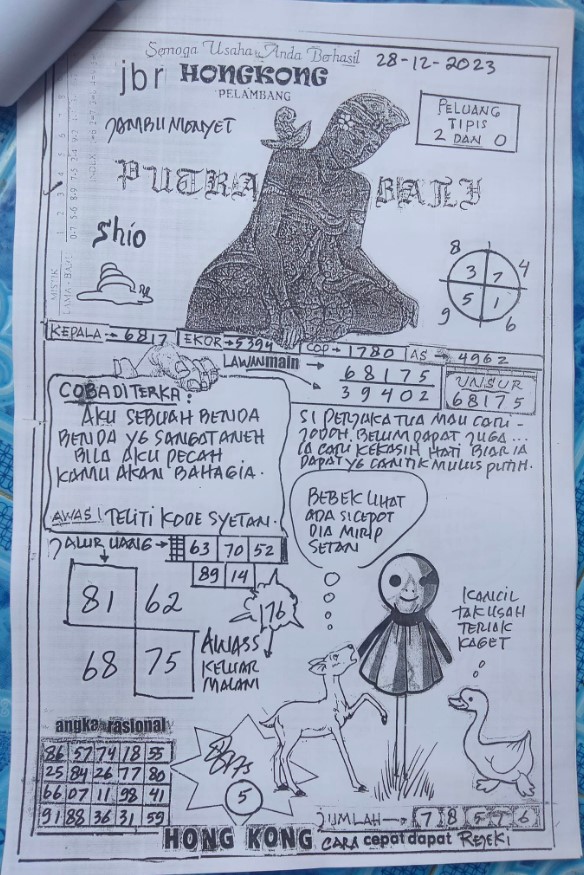 Semoga Usaha Anda Berhasil
28-12-2023
jbr HONGKONG
PELAMBANG
JAMBU MONYET
PELUANG
TIPIS
2 DAN 0
PUTRA BALI
Shio
8
3 7 4
5 1
9 6
KEPALA → 6817
EKOR → 5394
COP → 1780
AS → 4962
LAWAN main
68175
39402
UNSUR
68175
COBA DITERKA :
AKU SEBUAH BENDA
BENDA YG SANGAT ANEH
BILA AKU PECAH
KAMU AKAN BAHAGIA.
AWAS! TELITI KODE SYETAN.
SI PERJAKA TUA MAU CARI -
JODOH. BELUM DAPAT JUGA ...
IA CARI KEKASIH HATI BIAR IA
DAPAT YG CANTIK MULUS PUTIH.
BEBEK LIHAT
ADA SI CEPOT
DIA MIRIP
SETAN
JALUR UANG → 63 70 52
89 14
81 62
68 75
176
AWASS
KELUAR
MALAM
KANCIL
TAK USAH
TERIAK
KAGET
angka rasional
86 57 74 18 55
25 84 26 77 80
66 07 11 98 41
91 88 36 31 59
5
JUMLAH → 7 8 5 1 6
HONG KONG CARA cepat dapat REJEKI